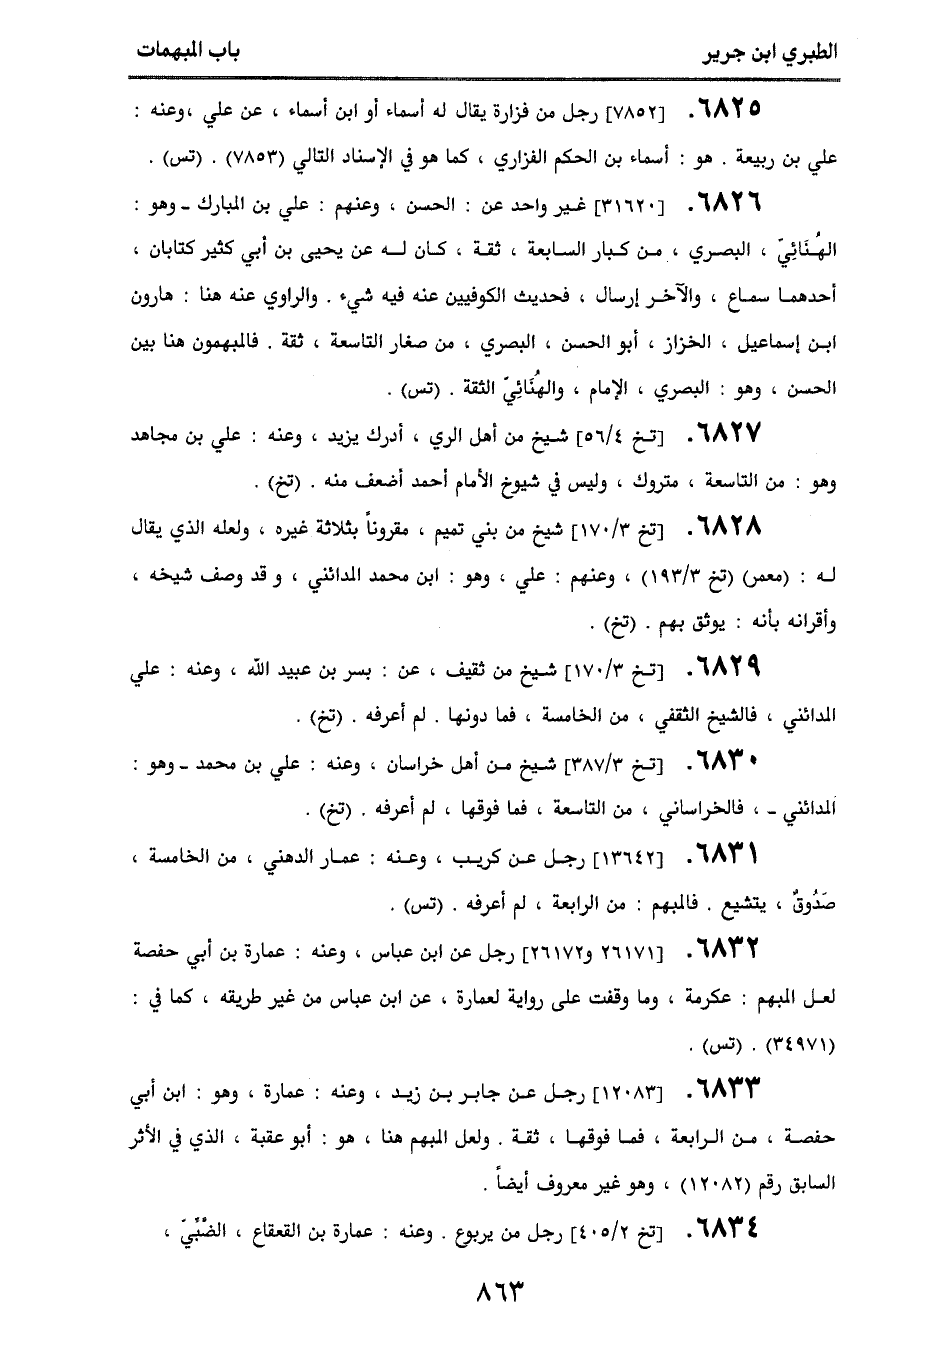 الطبري ابن جرير
باب المبهمات
٦٨٢٥. [٧٨٥٢] رجل من فزارة يقال له أسماء أو ابن أسماء ، عن علي ،وعنه :
علي بن ربيعة . هو : أسماء بن الحكم الفزاري ، كما هو في الإسناد التالي (٧٨٥٣) . (تس) .
٦٨٢٦. [٣١٦٢٠] غير واحد عن : الحسن ، وعنهم : علي بن المبارك ـ وهو :
الهُنَائِيّ ، البصري ، من كبار السابعة ، ثقة ، كان له عن يحيى بن أبي كثير كتابان ،
أحدهما سماع ، والآخر إرسال ، فحديث الكوفيين عنه فيه شيء . والراوي عنه هنا : هارون
ابن إسماعيل ، الخزاز ، أبو الحسن ، البصري ، من صغار التاسعة ، ثقة . فالمبهمون هنا بين
الحسن ، وهو : البصري ، الإمام ، والهُنَائِيّ الثقة . (تس) .
٦٨٢٧. [تخ ٥٦/٤] شيخ من أهل الري ، أدرك يزيد ، وعنه : علي بن مجاهد
وهو : من التاسعة ، متروك ، وليس في شيوخ الأمام أحمد أضعف منه . (تخ) .
٦٨٢٨. [تخ ١٧٠/٣] شيخ من بني تميم ، مقروناً بثلاثة غيره ، ولعله الذي يقال
له : (معمر) (تخ ١٩٣/٣) ، وعنهم : علي ، وهو : ابن محمد المدائني ، و قد وصف شيخه ،
وأقرانه بأنه : يوثق بهم . (تخ) .
٦٨٢٩. [تخ ١٧٠/٣] شيخ من ثقيف ، عن : بسر بن عبيد الله ، وعنه : علي
المدائني ، فالشيخ الثقفي ، من الخامسة ، فما دونها . لم أعرفه . (تخ) .
٦٨٣٠. [تخ ٣٨٧/٣] شيخ من أهل خراسان ، وعنه : علي بن محمد ـ وهو :
المدائني ـ ، فالخراساني ، من التاسعة ، فما فوقها ، لم أعرفه . (تخ) .
٦٨٣١. [١٣٦٤٢] رجل عن كريب ، وعنه : عمار الدهني ، من الخامسة ،
صَدُوقٌ ، يتشيع . فالمبهم : من الرابعة ، لم أعرفه . (تس) .
٦٨٣٢. [٢٦١٧١ و٢٦١٧٢] رجل عن ابن عباس ، وعنه : عمارة بن أبي حفصة
لعل المبهم : عكرمة ، وما وقفت على رواية لعمارة ، عن ابن عباس من غير طريقه ، كما في :
(٣٤٩٧١) . (تس) .
٦٨٣٣. [١٢٠٨٣] رجل عن جابر بن زيد ، وعنه : عمارة ، وهو : ابن أبي
حفصة ، من الرابعة ، فما فوقها ، ثقة . ولعل المبهم هنا ، هو : أبو عقبة ، الذي في الأثر
السابق رقم (١٢٠٨٢) ، وهو غير معروف أيضاً .
٦٨٣٤. [تخ ٤٠٥/٢] رجل من يربوع . وعنه : عمارة بن القعقاع ، الضَّبِّيّ ،
٨٦٣